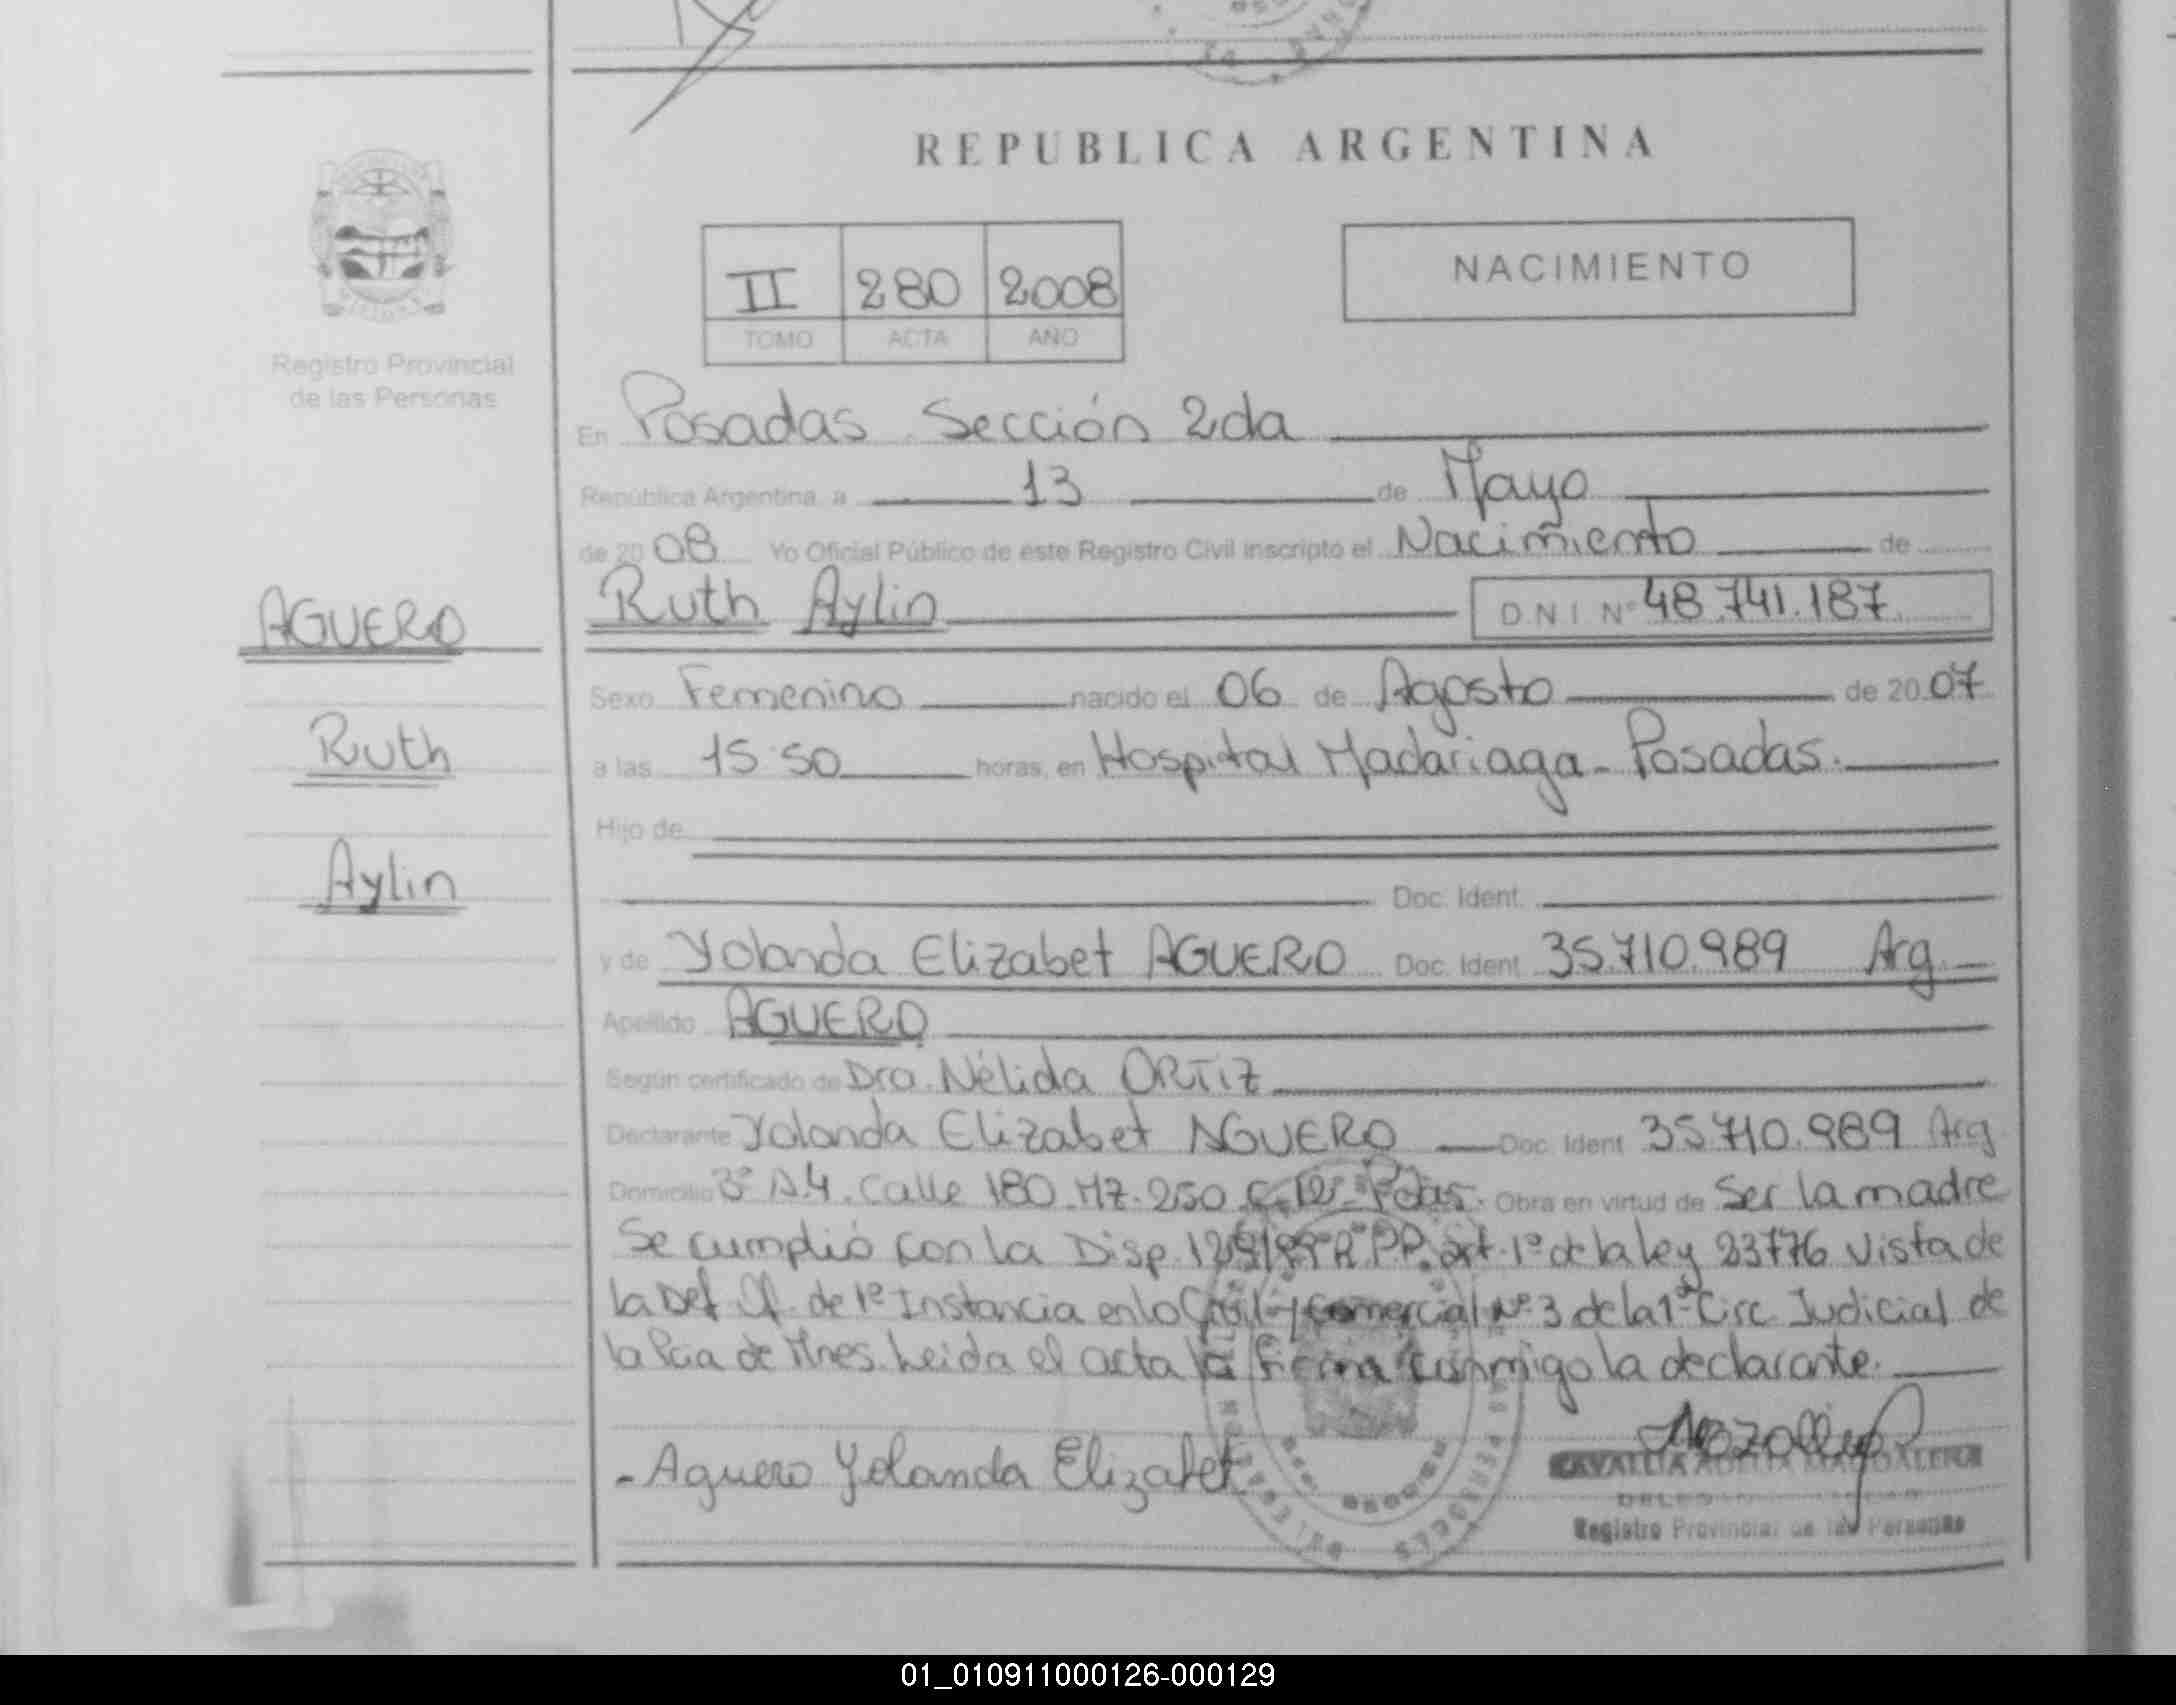 REPUBLICA ARGENTINA
II 280 2008
TOMO ACTA AÑO
NACIMIENTO
Registro Provincial
de las Personas
En Posadas Sección 2da
República Argentina, a 13 de Mayo
de 20 08 Yo Oficial Público de este Registro Civil inscripto el Nacimiento de
AGUERO
Ruth Aylin D.N.I. Nº 48.741.187
Sexo Femenino nacido el 06 de Agosto de 20 07
Ruth
a las 15:50 horas, en Hospital Madariaga - Posadas.
Hijo de
Aylin
Doc. Ident.
y de Yolanda Elizabet AGUERO Doc. Ident 35.710.989 Arg.
Apellido AGUERO
Según certificado de Dra. Nélida ORTIZ
Declarante Yolanda Elizabet AGUERO Doc. Ident 35.710.989 Arg
Domicilio 3º A.4. Calle 180 Mz. 250 Pdas. Obra en virtud de Ser la madre
Se cumplió con la Disp. art. 1º de la ley 23776 Vista de
la Def. Of. de 1º Instancia en lo Civil y Comercial Nº 3 de la 1ª Circ. Judicial de
la Pcia de Mnes. Leida el acta la firma conmigo la declarante.
- Aguero Yolanda Elizabet
Registro Provincial de las Personas
01_010911000126-000129